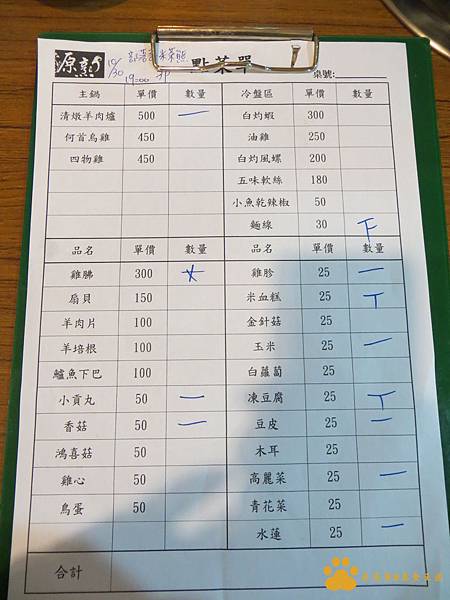 源夥 10/30 19:00 3P 點菜單 桌號:
主鍋 單價 數量 冷盤區 單價 數量
清燉羊肉爐 500 一 白灼蝦 300
何首烏雞 450 油雞 250
四物雞 450 白灼風螺 200
五味軟絲 180
小魚乾辣椒 50
麵線 30 下
品名 單價 數量 品名 單價 數量
雞腩 300 雞胗 25 一
扇貝 150 米血糕 25 T
羊肉片 100 金針菇 25
羊培根 100 玉米 25 一
鱸魚下巴 100 白蘿蔔 25
小貢丸 50 一 凍豆腐 25 T
香菇 50 一 豆皮 25 一
鴻喜菇 50 木耳 25
雞心 50 高麗菜 25 一
鳥蛋 50 青花菜 25
水蓮 25 一
合計